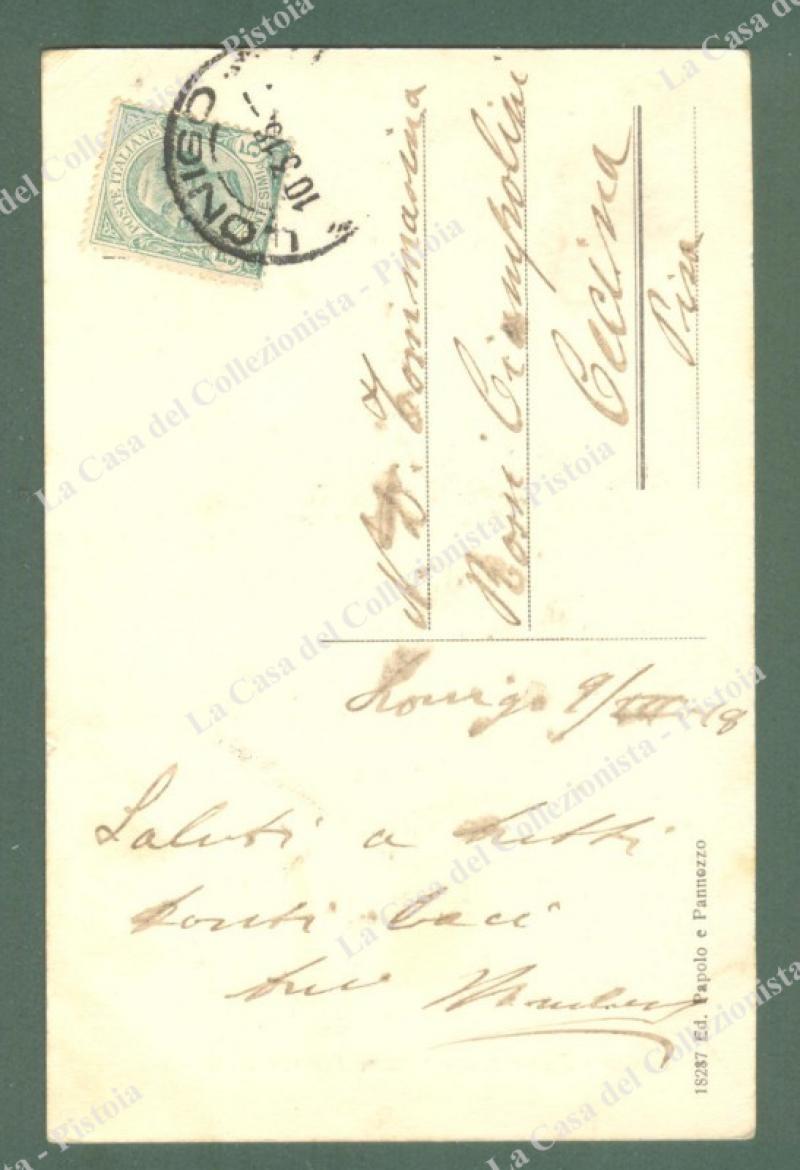 POSTE ITALIANE
CENTESIMI 5
LONIGO
10.3.18
N. D. Tommasina
Rossi Ciampolini
Cecina
Pisa
Lonigo 9/III 18
Saluti a tutti
tonti baci
tuo
18287 Ed. Papolo e Pannozzo
La Casa del Collezionista - Pistoia